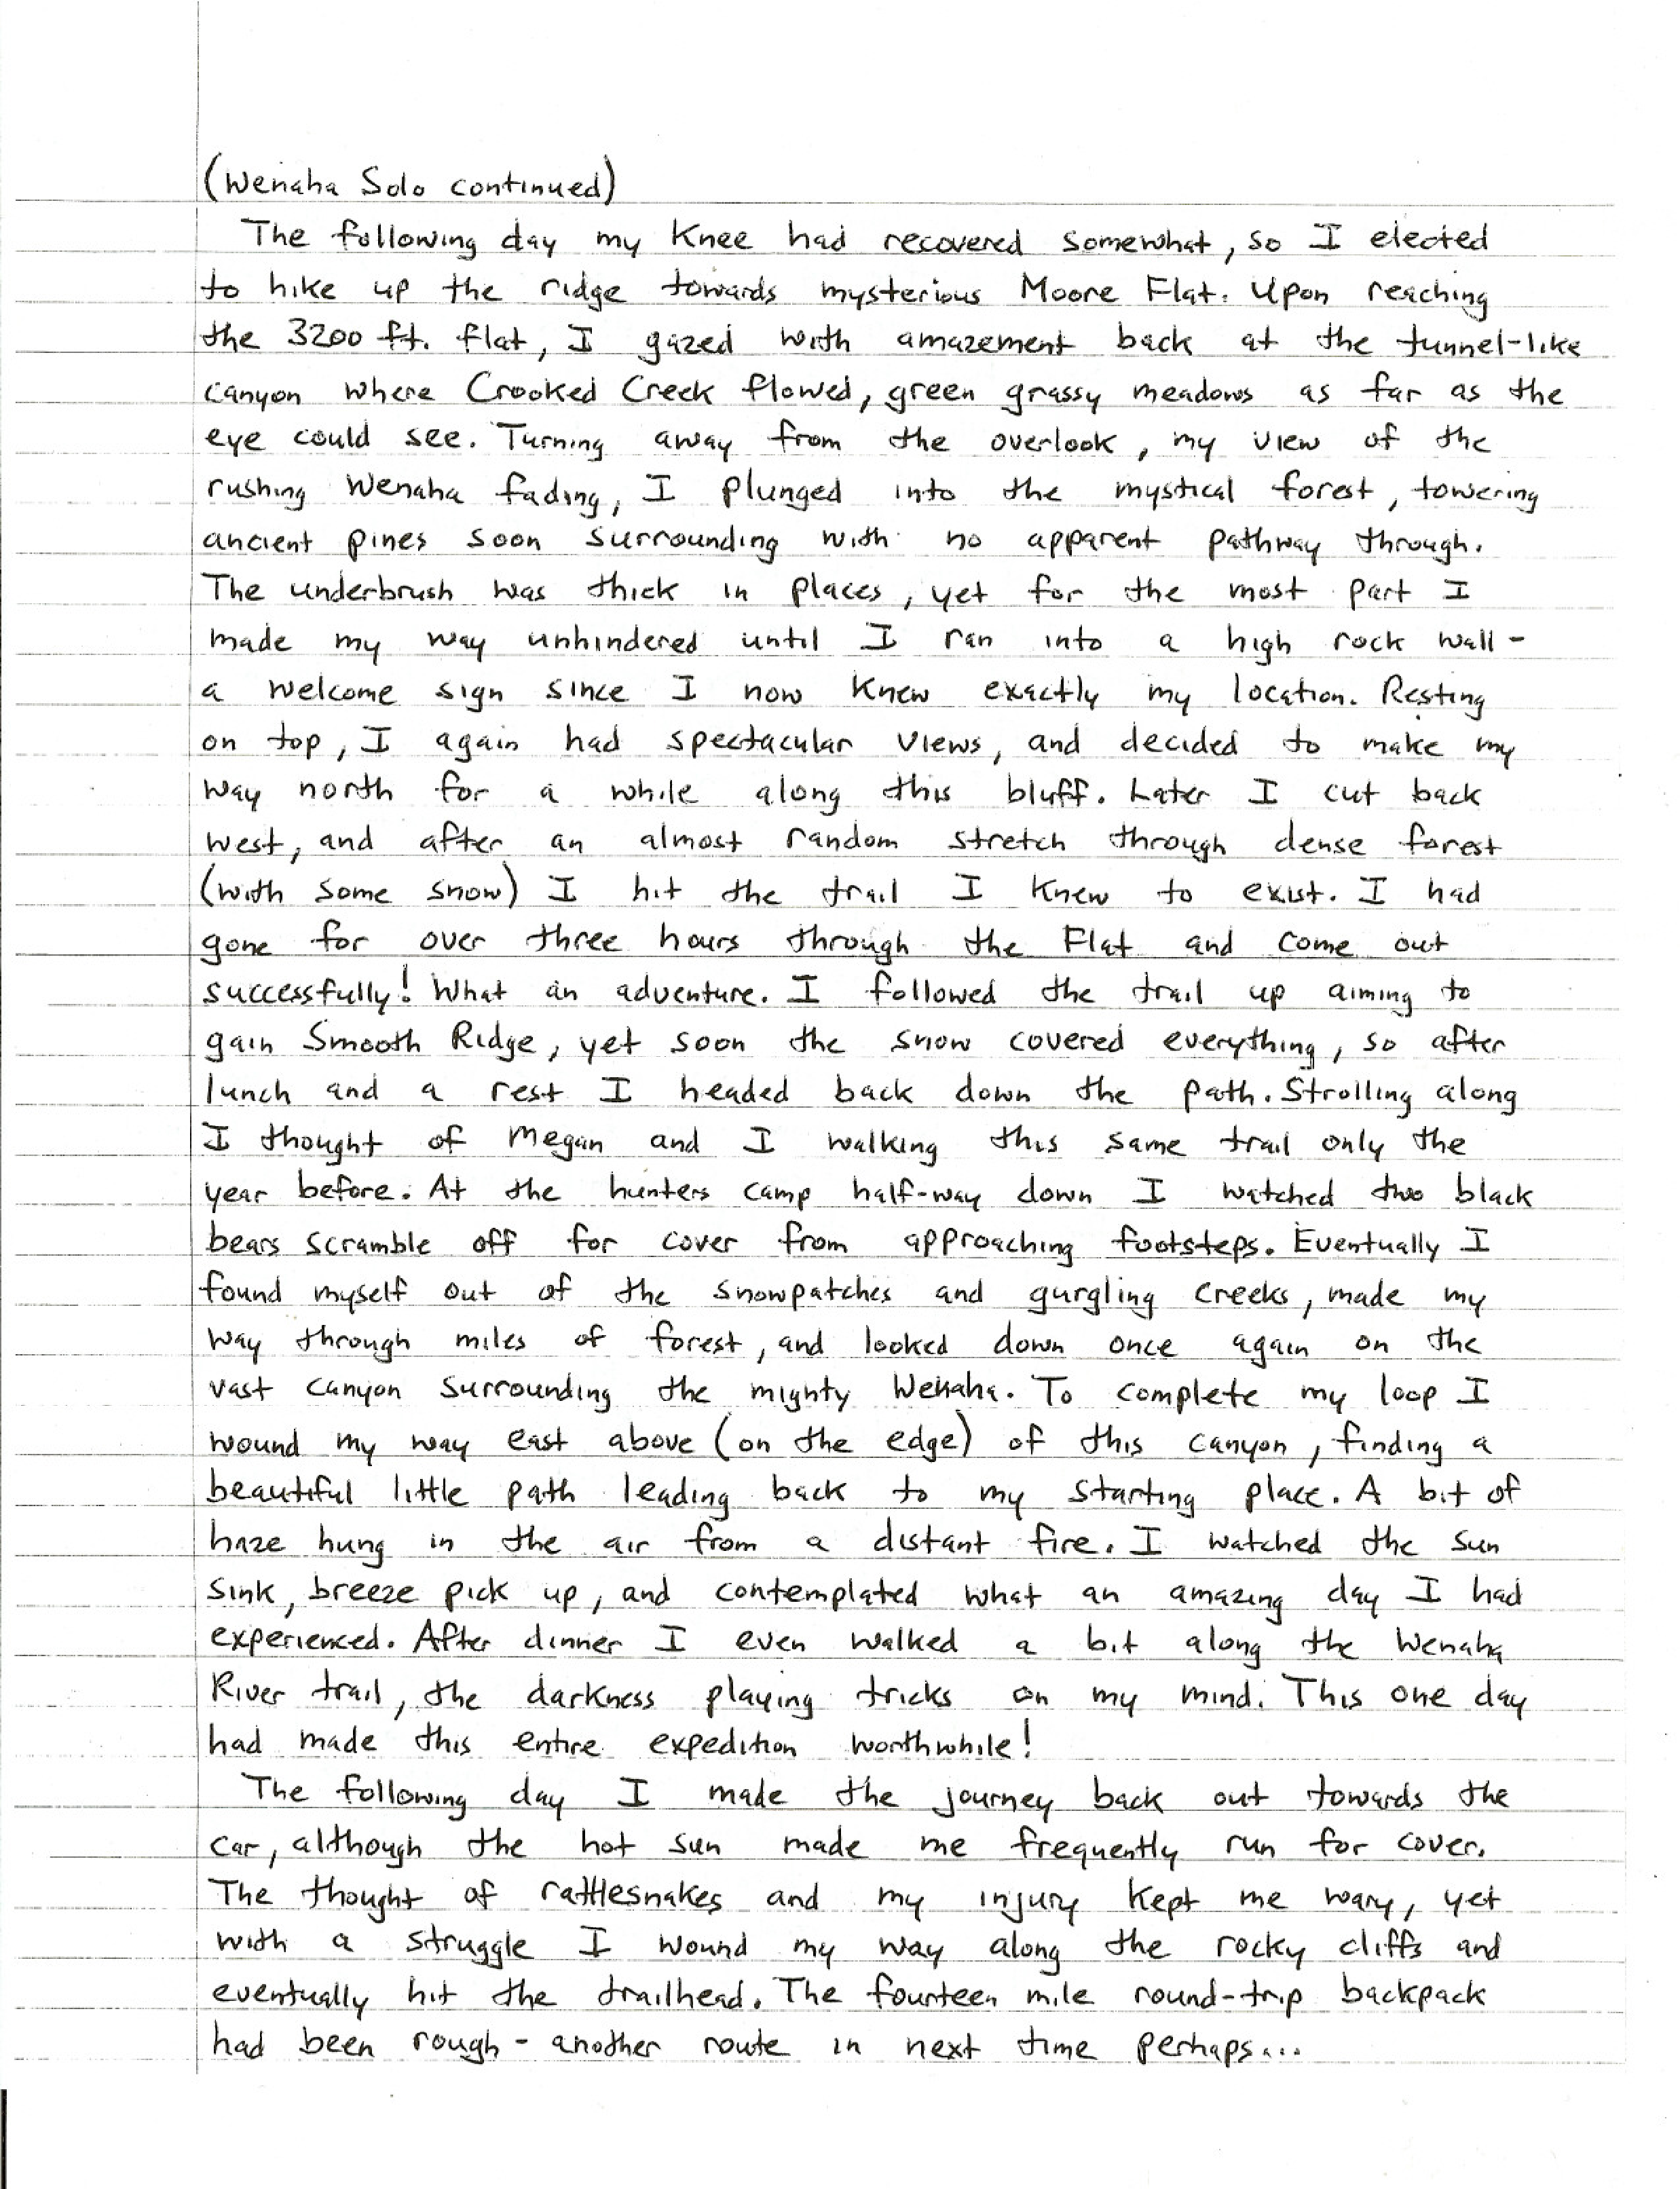 (Wenaha Solo continued)
The following day my knee had recovered somewhat, so I elected
to hike up the ridge towards mysterious Moore Flat. Upon reaching
the 3200 ft. flat, I gazed with amazement back at the tunnel-like
canyon where Crooked Creek flowed, green grassy meadows as far as the
eye could see. Turning away from the overlook, my view of the
rushing Wenaha fading, I plunged into the mystical forest, towering
ancient pines soon surrounding with no apparent pathway through.
The underbrush was thick in places, yet for the most part I
made my way unhindered until I ran into a high rock wall -
a welcome sign since I now knew exactly my location. Resting
on top, I again had spectacular views, and decided to make my
way north for a while along this bluff. Later I cut back
west, and after an almost random stretch through dense forest
(with some snow) I hit the trail I knew to exist. I had
gone for over three hours through the Flat and come out
successfully! What an adventure. I followed the trail up aiming to
gain Smooth Ridge, yet soon the snow covered everything, so after
lunch and a rest I headed back down the path. Strolling along
I thought of Megan and I walking this same trail only the
year before. At the hunters camp half-way down I watched two black
bears scramble off for cover from approaching footsteps. Eventually I
found myself out of the snowpatches and gurgling creeks, made my
way through miles of forest, and looked down once again on the
vast canyon surrounding the mighty Wenaha. To complete my loop I
wound my way east above (on the edge) of this canyon, finding a
beautiful little path leading back to my starting place. A bit of
haze hung in the air from a distant fire. I watched the sun
sink, breeze pick up, and contemplated what an amazing day I had
experienced. After dinner I even walked a bit along the Wenaha
River trail, the darkness playing tricks on my mind. This one day
had made this entire expedition worthwhile!
The following day I made the journey back out towards the
car, although the hot sun made me frequently run for cover.
The thought of rattlesnakes and my injury kept me wary, yet
with a struggle I wound my way along the rocky cliffs and
eventually hit the trailhead. The fourteen mile round-trip backpack
had been rough - another route in next time perhaps...